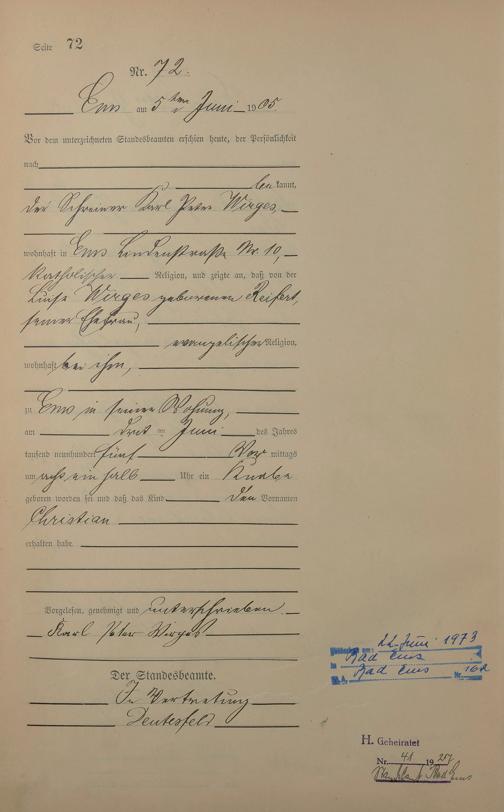 Seite 72
Nr. 72.
Ems am 5ten Juni 1905
Vor dem unterzeichneten Standesbeamten erschien heute, der Persönlichkeit
nach
kannt,
der Schreiner Karl Peter Wirges,
wohnhaft in Ems Lindenstraße Nr. 10,
katholischer Religion, und zeigte an, daß von der
Luise Wirges geborenen Reifert,
seiner Ehefrau,
evangelischer Religion,
wohnhaft bei ihm,
zu Ems in seiner Wohnung,
am drit ten Juni des Jahres
tausend neunhundert fünf Vor mittags
um acht ein halb Uhr ein Knabe
geboren worden sei und daß das Kind den Vornamen
Christian
erhalten habe.
Vorgelesen, genehmigt und unterschrieben.
Karl Peter Wirges
Der Standesbeamte.
In Vertretung
22. Juni 1973
in Bad Ems
St.A. Bad Ems Nr.
H. Geheiratet
Nr. 41 19
Bad Ems